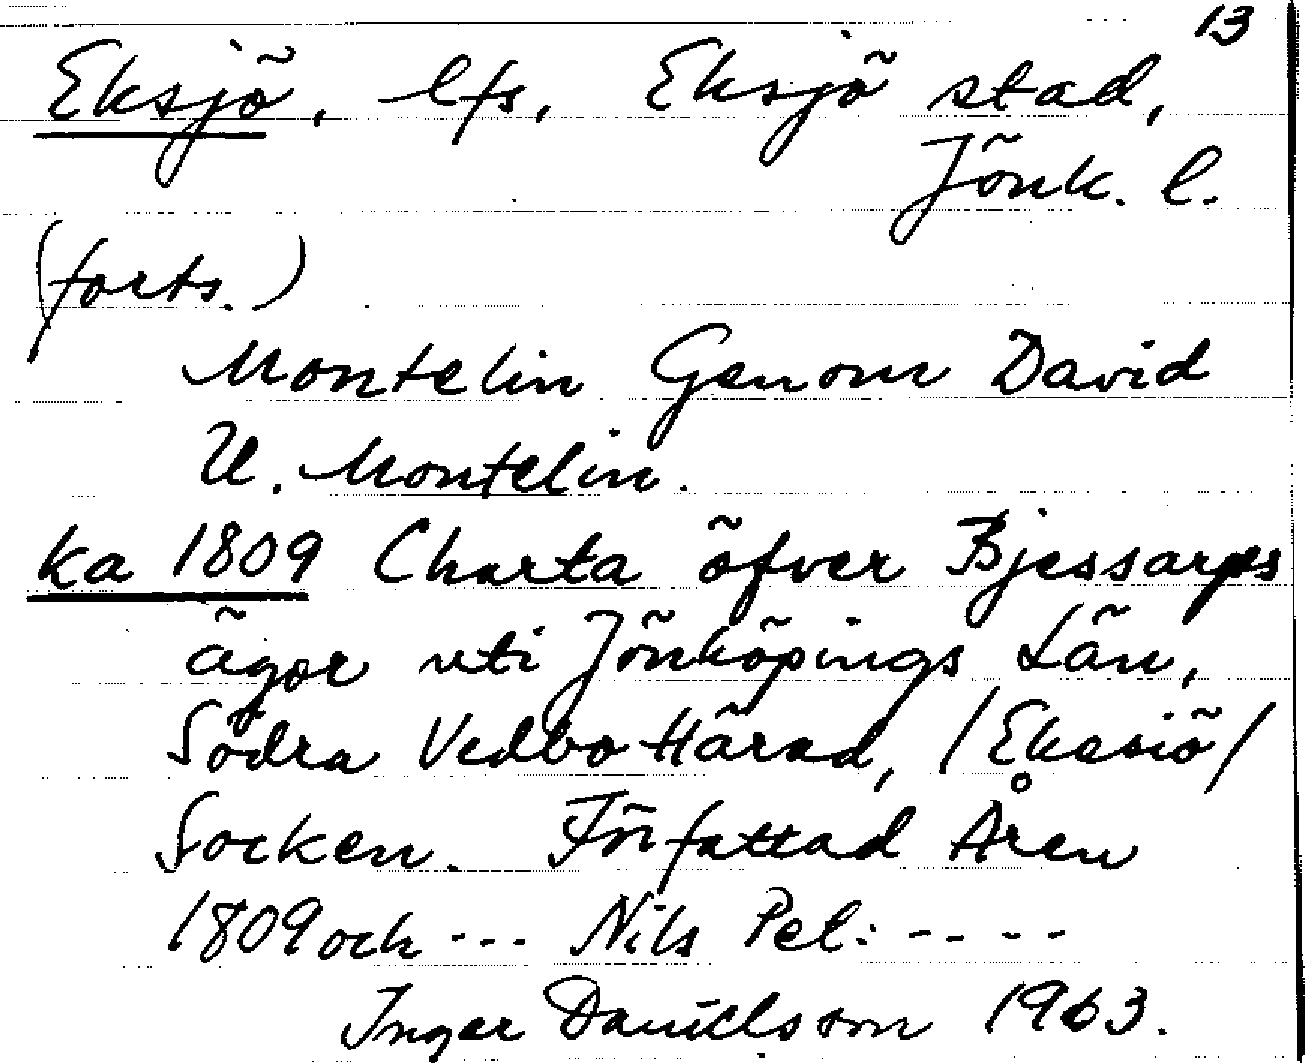 13
Eksjö, lfs, Eksjö stad,
Jönk. l.
(forts.)
Montelin Genom David
U. Montelin.
ka 1809 Charta öfver Bjessarps
ägor uti Jönköpings Län,
Södra Vedbo Härad, /Eksiö/
Socken. Författad Åren
1809 och --- Nils Pet: ----
Inger Danielsson 1963.